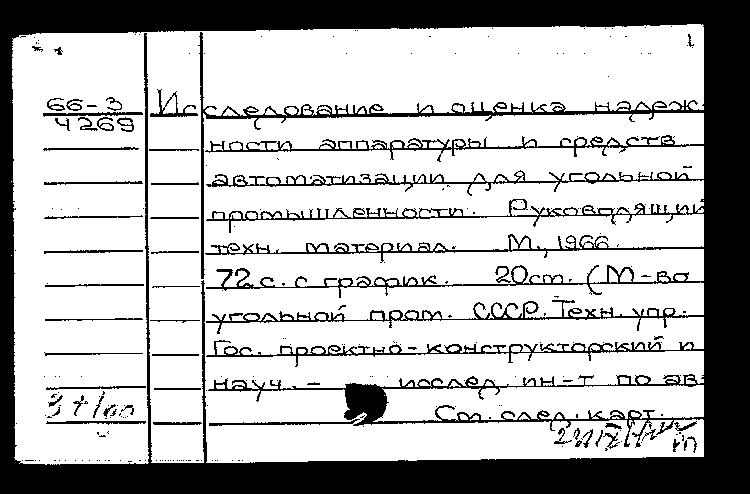 1
66-3 Исследование и оценка надеж-
4269 ности аппаратуры и средств
автоматизации для угольной
промышленности. Руководящий
техн. материал. М., 1966.
72 с. с график. 20 см. (М-во
угольной пром. СССР. Техн. упр.
Гос. проектно-конструкторский и
науч.- исслед. ин-т по ав-
См. след. карт.